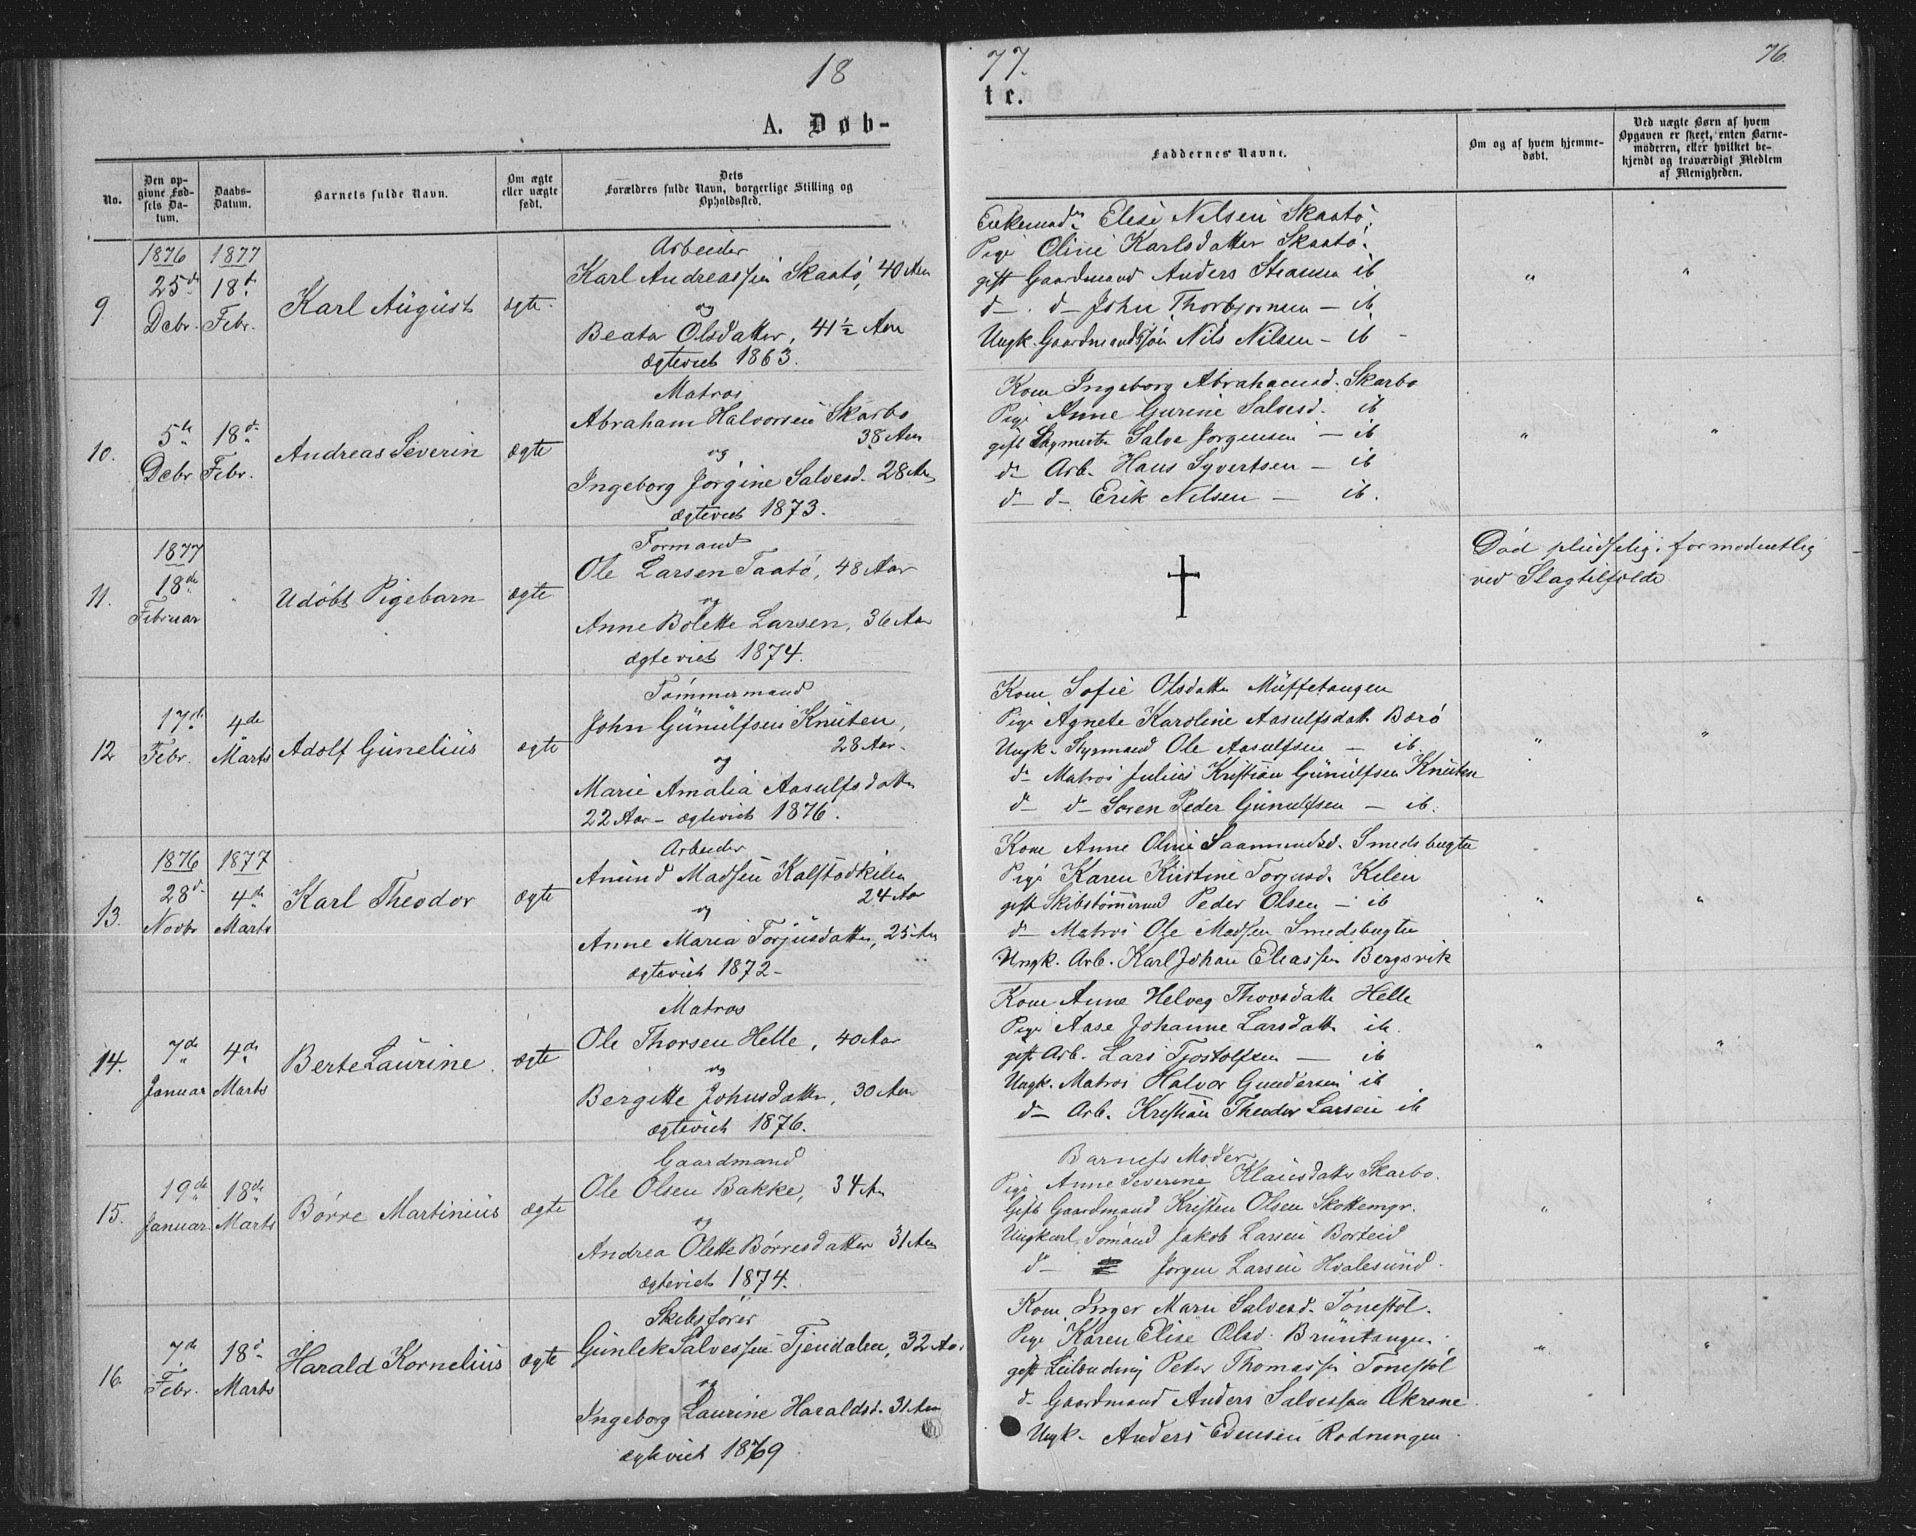 18
77.
76.
A. Døb-
te.
No.
Den op-
givne Fød-
sels Da-
tum.
Daabs-
Datum.
Barnets fulde Navn.
Om ægte
eller uægte
født.
Dets
Forældres fulde Navn, borgerlige Stilling og
Opholdssted.
Faddernes Navne.
Om og af hvem hjemme-
døbt.
Ved uægte Børn af hvem
Opgaven er skeet, enten Barne-
moderen, eller hvilket be-
kjendt og troværdigt Medlem
af Menigheden.
9.
1876
25de
Debr.
1877
18de
Febr.
Karl August
ægte.
Arbeider
Karl Andreassen Skaatø, 40 Aar
og
Beata Olsdatter, 41½ Aar
ægteviet 1863.
Elise Nilsen Skaatø.
Pige Oline Karlsdatter Skaatø.
gift Gaardmand Anders ib
d- d- John Thorbjørnsen - ib
Ungk. Gaardmandssøn Nils Nilsen - ib -
"
"
10.
5te
Debr
18de
Febr.
Andreas Severin
ægte
Matros
Abraham Halvorsen Skarbo
38 Aar
og
Ingeborg Jørgine Salvesd. 28 Aar
ægteviet 1873.
Kone Ingeborg Abrahamsd. Skarbo
Pige Anne Gurine Salvesd. ib
gift Salve Jørgensen - ib
d- Arb. Hans Syvertsen - ib
d- d- Erik Nilsen - ib.
"
"
11.
1877
18de
Februar
"
Udøbt Pigebarn
ægte
Formand
Ole Larsen Taatø, 48 Aar
og
Anne Bolette Larsen, 36 Aar
ægteviet 1874.
†
Død pludselig, formodentlig
ved Slagtilfælde
12
17de
Febr.
4de
Marts
Adolf Gunelius
ægte
Tømmermand
John Gunulfsen Knuten,
28 Aar.
og
Marie Amalia Aasulfsdatter
22 Aar - ægteviet 1876.
Kone Sofie Olsdatter Muffetangen
Pige Agnete Karoline Aasulfsdatt. Barø
Ungk. Styrmand Ole Aasulfsen - ib.
d- Matros Julius Kristian Gunulfsen Knuten
d- d- Søren Peder Gunulfsen - ib.
"
"
13.
1876
28de
Novbr
1877
4de
Marts
Karl Theodor
ægte
Arbeider
Amund Madsen Kalstadkilen
24 Aar
og
Anne Maria Torjusdatter, 25 Aar
ægteviet 1872 -
Kone Anne Oline Saamundsd. Smedsbugten
Pige Karen Kirstine Torjusd. Kilen
gift Skibstømmermd Peder Olsen - ib
d- Matros Ole Madsen Smedsbugten
Ungk. Arb. Karl Johan Eliassen Bergsvik
"
"
14.
7de
Januar
4de
Marts
Berte Laurine.
ægte
Matros
Ole Thorsen Helle, 40 Aar
og
Bergitte Johnsdatter, 30 Aar
ægteviet 1876.
Kone Anne Helveg Thorsdatter Helle
Pige Aase Johanne Larsdatter ib.
gift Arb. Lars Tjostolfsen - ib
Ungk. Matros Halvor Gundersen ib
d- Arb. Kristian Theodor Larsen ib
"
"
15.
19de
Januar.
18de
Marts
Børre Martinius
ægte
Gaardmand
Ole Olsen Bakke, 34 Aar
og
Andrea Olette Børresdatter 31 Aar
ægteviet 1874.
Barnets Moder
Pige Anne Severine Klausdatter Skarbo.
Gift Gaardmand Kristen Olsen Skottemyr.
Ungkarl Sømand Jakob Larsen Borteid
d- Jørgen Larsen Hvalesund.
"
"
16.
7de
Febr.
18de
Marts
Harald Kornelius
ægte
Skibsfører
Gunlek Salvessen Tjendalen, 32 Aar
og
Ingeborg Laurine Haraldsd. 31 Aar
ægteviet 1869
Kone Inger Marie Salvesd. Tonestøl.
Pige Karen Elise Olsd. Bruntangen.
gift Leilænding Peter Thomassen Tonestøl
d- Gaardmand Anders Salvessen
Ungk. Anders Edensen Rødningen
"
"